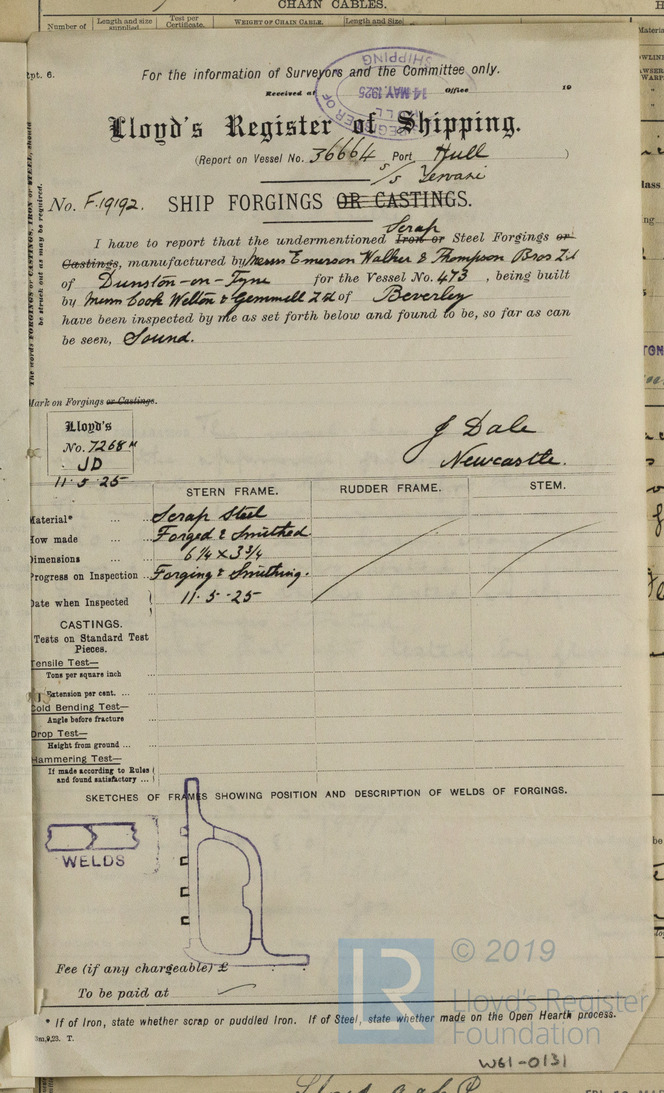 CHAIN CABLES.
Number of
Length and size supplied.
Test per Certificate.
WEIGHT OF CHAIN CABLE.
Length and Size
Rpt. 6.
For the information of Surveyors and the Committee only.
Received at
Office
19
14 MAY.1925
Lloyd's Register of Shipping.
(Report on Vessel No. 36664 Port Hull )
S/S Yervani
No. F.19192.
SHIP FORGINGS OR CASTINGS.
Scrap
I have to report that the undermentioned Iron or Steel Forgings or
Castings, manufactured by Messrs Emerson Walker & Thompson Bros Ld
of Dunston-on-Tyne for the Vessel No. 473 , being built
by Messrs Cook Welton & Gemmell Ld of Beverley
have been inspected by me as set forth below and found to be, so far as can
be seen, Sound.
The words FORGINGS or CASTINGS, IRON or STEEL, should
be struck out as may be required.
Mark on Forgings or Castings.
Lloyd's
No. 7268 N
JD
11.5.25
J Dale
Newcastle.
STERN FRAME.
RUDDER FRAME.
STEM.
Material* ... ... Scrap Steel
How made ... Forged & Smithed
Dimensions ... 6¼ x 3¾
Progress on Inspection ... Forging & Smithing.
Date when Inspected 11.5.25
CASTINGS.
Tests on Standard Test
Pieces.
Tensile Test—
Tons per square inch ...
Extension per cent. ... ...
Cold Bending Test—
Angle before fracture ...
Drop Test—
Height from ground ... ...
Hammering Test—
If made according to Rules
and found satisfactory ...
SKETCHES OF FRAMES SHOWING POSITION AND DESCRIPTION OF WELDS OF FORGINGS.
WELDS
Fee (if any chargeable) £
To be paid at
© 2019
LR
Lloyd's Register
Foundation
* If of Iron, state whether scrap or puddled Iron. If of Steel, state whether made on the Open Hearth process.
W61-0131